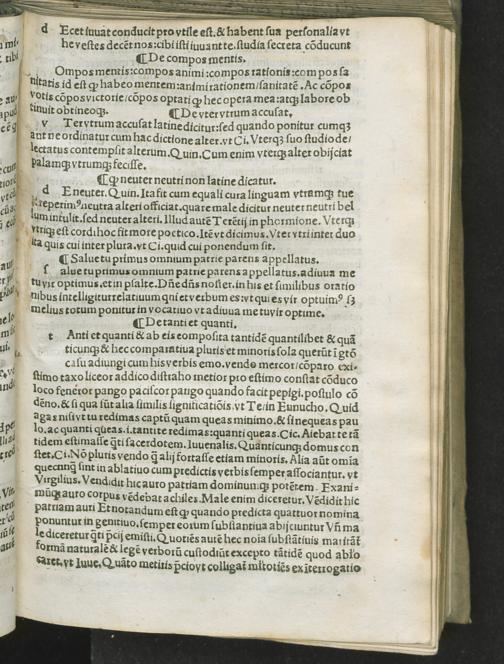 d Ecet iuuat conducit pro vtile est. & habent sua personalia vt
he vestes decēt nos: cibi isti iuuant te. studia secreta cōducunt
¶ De compos mentis.
Ompos mentis: compos animi: compos rationis: compos sa
nitatis id est ꝙ habeo mentem: animi rationem / sanitatē. Ac cōpos
votis cōpos victorie / cōpos optati ꝙ hec opera mea: atqꝫ labore ob
tinuit obtineoqꝫ. ¶ De vter vtrum accusat.
v Ter vtrum accusat latine dicitur: sed quando ponitur cumqꝫ
aut ne ordinatur cum hac dictione alter. vt Ci. Vterqꝫ suo studio de/
lectatus contempsit alterum. Quin. Cum enim vterqꝫ alter obijciat
palamqꝫ vtrumqꝫ fecisse.
¶ ꝙ neuter neutri non latine dicatur.
d E neuter. Quin. Ita fit cum equali cura linguam vtramqꝫ tue
ri ceperimꝰ neutra alteri officiat. quare male dicitur neuter neutri bel
lum intulit. sed neuter alteri. Illud autē Terētij in phormione. Vterqꝫ
vtriqꝫ est cordi hoc fit more poetico. Itē vt dicimus. Vter vtri inter duo
ita quis cui inter plura. vt Ci. quid cui ponendum sit.
¶ Salue tu primus omnium patrie parens appellatus.
s alue tu primus omnium patrie parens appellatus. adiuua me
tu vir optimus. et in psalte. Dn̄e dn̄s noster. in his et similibus oratio
nibus intelligitur relatiuum qui et verbum es: vt qui es vir optuimꝰ sꝫ
melius totum ponitur in vocatiuo vt adiuua me tu vir optime.
¶ De tanti et quanti.
t Anti et quanti & ab eis composita tantidē quantilibet & quā
ticunqꝫ & hec comparatiua pluris et minoris sola querūt ī gtō
casu adiungi cum his verbis emo. vendo mercor / cōparo exi-
stimo taxo liceor addico distraho metior pro estimo constat cōduco
loco feneror pango paciscor pango quando facit pepigi. postulo cō
dēno. & si qua sūt alia similis significatiōis. vt Te / in Eunucho. Quid
agas nisi vt tu redimas captū quam queas minimo. & si nequeas pau
lo. ac quanti queas. i. tanti te redimas: quanti queas. Cic. Aiebat te tā
tidem estimasse q̄ti sacerdotem. Iuuenalis. Quanticunqꝫ domus con
stet. Ci. Nō pluris vendo q̄ alij fortasse etiam minoris. Alia aūt omīa
quecunqꝫ sint in ablatiuo cum predictis verbis semper associantur. vt
Virgilius. Vendidit hic auro patriam dominumqꝫ potētem. Exani-
mūqꝫ auro corpus vēdebat achiles. Male enim diceretur. Vēdidit hic
patriam auri Et notandum est ꝙ quando predicta quattuor nomina
ponuntur in genitiuo. semper eorum substantiua abijciuntur Vn̄ ma
le diceretur q̄ti p̄cij emisti. Quotiēs autē hec noīa substātiuis maritāt
formā naturalē & legē verborū custodiūt excepto tātidē quod ablō
caret. vt Iuue. Quāto metiris p̄cio vt colligāt mltotiēs ex īterrogatio